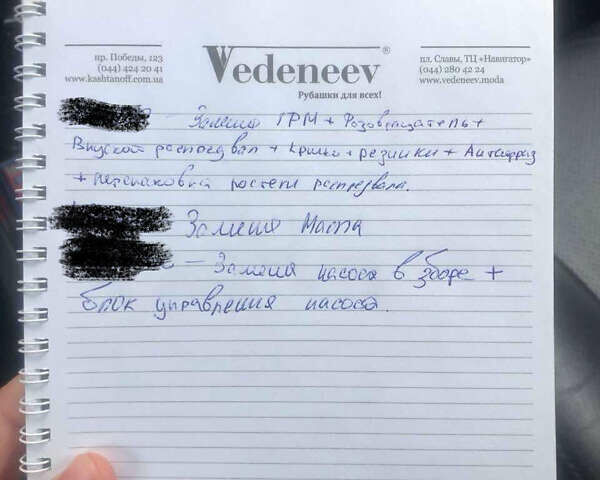 пр. Победы, 123
(044) 424 20 41
www.kashtanoff.com.ua
Vedeneev®
Рубашки для всех!
пл. Славы, ТЦ «Навигатор»
(044) 280 42 24
www.vedeneev.moda
- Замена ГРМ + Фазовращатель +
Впускной распредвал + крышка + резинки + Антифриз
+ перепаковка постели распредвала.
Замена Масла
- Замена насоса в зборе +
блок управления насоса.